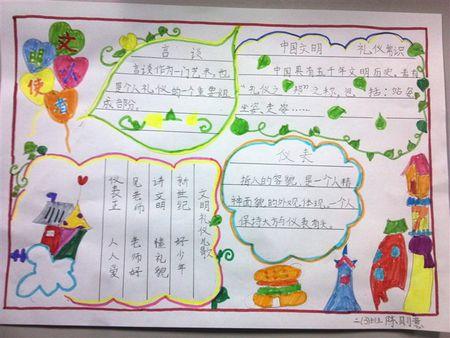 文明
使者
言谈
言谈作为一门艺术,也
是个人礼仪的一个重要组
成部分。
中国文明 礼仪常识
中国具有五千年文明历史,素有
“礼仪之邦”之称,包括:站姿
坐姿、走姿……
文明礼仪儿歌
新世纪 好少年
讲文明 懂礼貌
见老师 老师好
仪表正 人人爱
仪表
指人的容貌,是一个人精
神面貌的外观体现,一个人
保持大方与仪表有关。